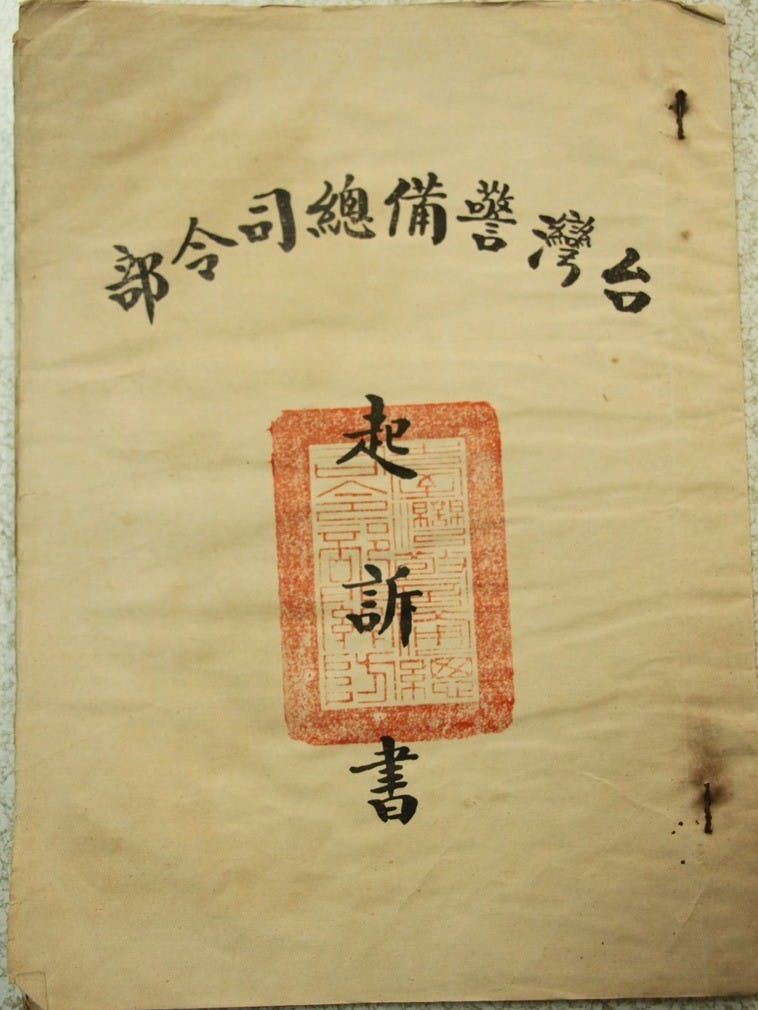 台灣警備總司令部
起訴書